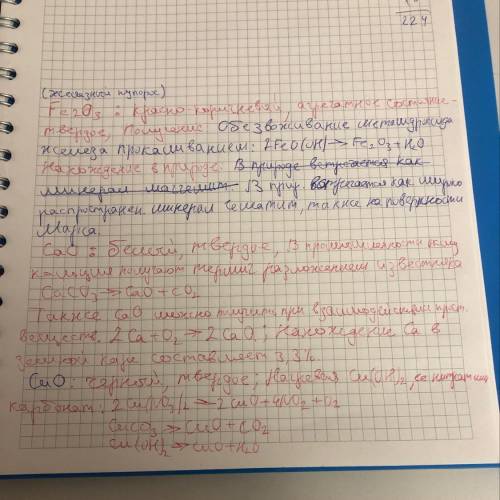 224
(железный купорос)
Fe2O3: Красно-коричневый, агрегатное состояние-
твердое, Получение Обезвоживание метагидроксида
железа прокаливанием: 2FeO(OH) → Fe2O3+H2O
Нахождение в природе: В природе встречается как
минерал маггемит. В прир. встречается как широко
распространен. минерал гематит, также на поверхности
Марса.
CaO: белый, твердое, В промышленности оксид
кальция получают термич. разложением известняка
CaCO3 → CaO + CO2
Также CaO можно получить при взаимодействии прост.
веществ. 2Ca + O2 → 2CaO; Нахождение Ca в
земной коре составляет 3,3%
CuO: черный, твердое; Нагревая Cu(OH)2, ее нитрат или
карбонат: 2Cu(NO3)2 → 2CuO+4NO2+O2
CuCO3 → CuO + CO2
Cu(OH)2 → CuO + H2O